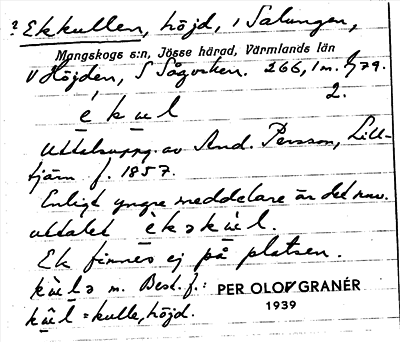 ? Ekkullen, höjd, i Salungen,
Mangskogs s:n, Jösse härad, Värmlands län
V Höjden, S Sågviken. 266,1 m. 5/79.
2.
é k u l
Uttalsuppg. av And. Persson, Lill-
tjärn f. 1857.
Enligt yngre meddelare är det nuv.
uttalet è k ə k u l.
Ek finnes ej på platsen.
m. Best. f.:
= kulle, höjd.
PER OLOF GRANÉR
1939